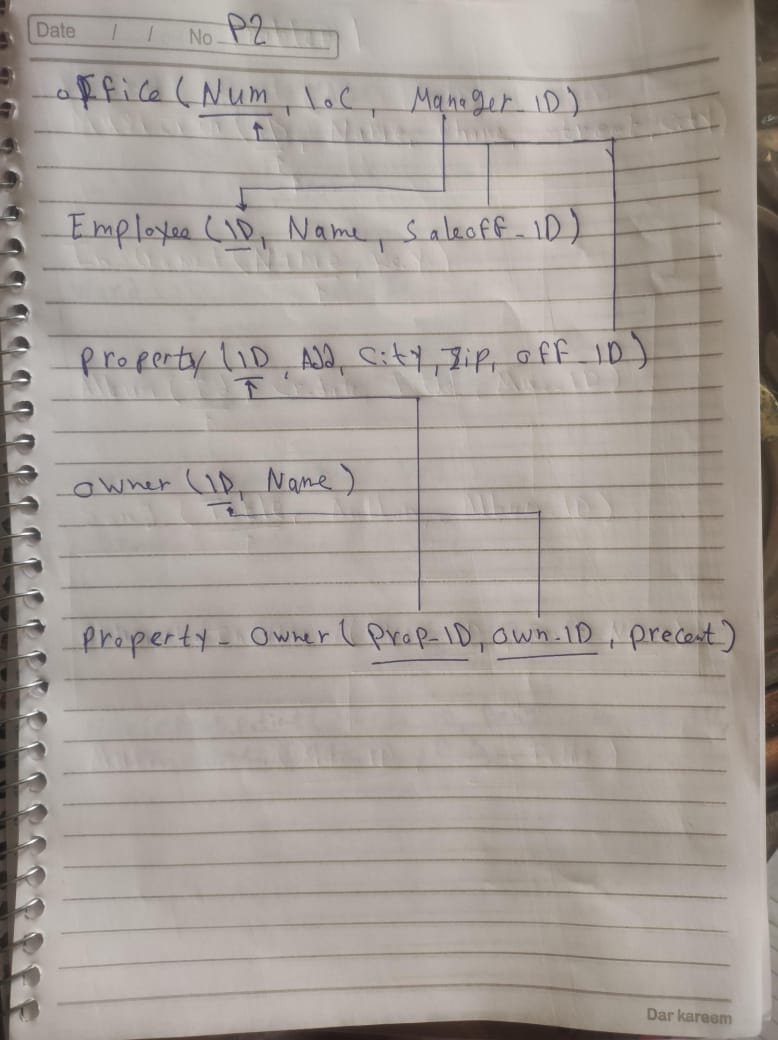 Date / / No P2
office (Num, loc, Manager_ID)
Employee (ID, Name, Saleoff-ID)
property (ID, Add, City, Zip, off_ID)
owner (ID, Name)
property - owner (prop-ID, own-ID, precent)
Dar kareem